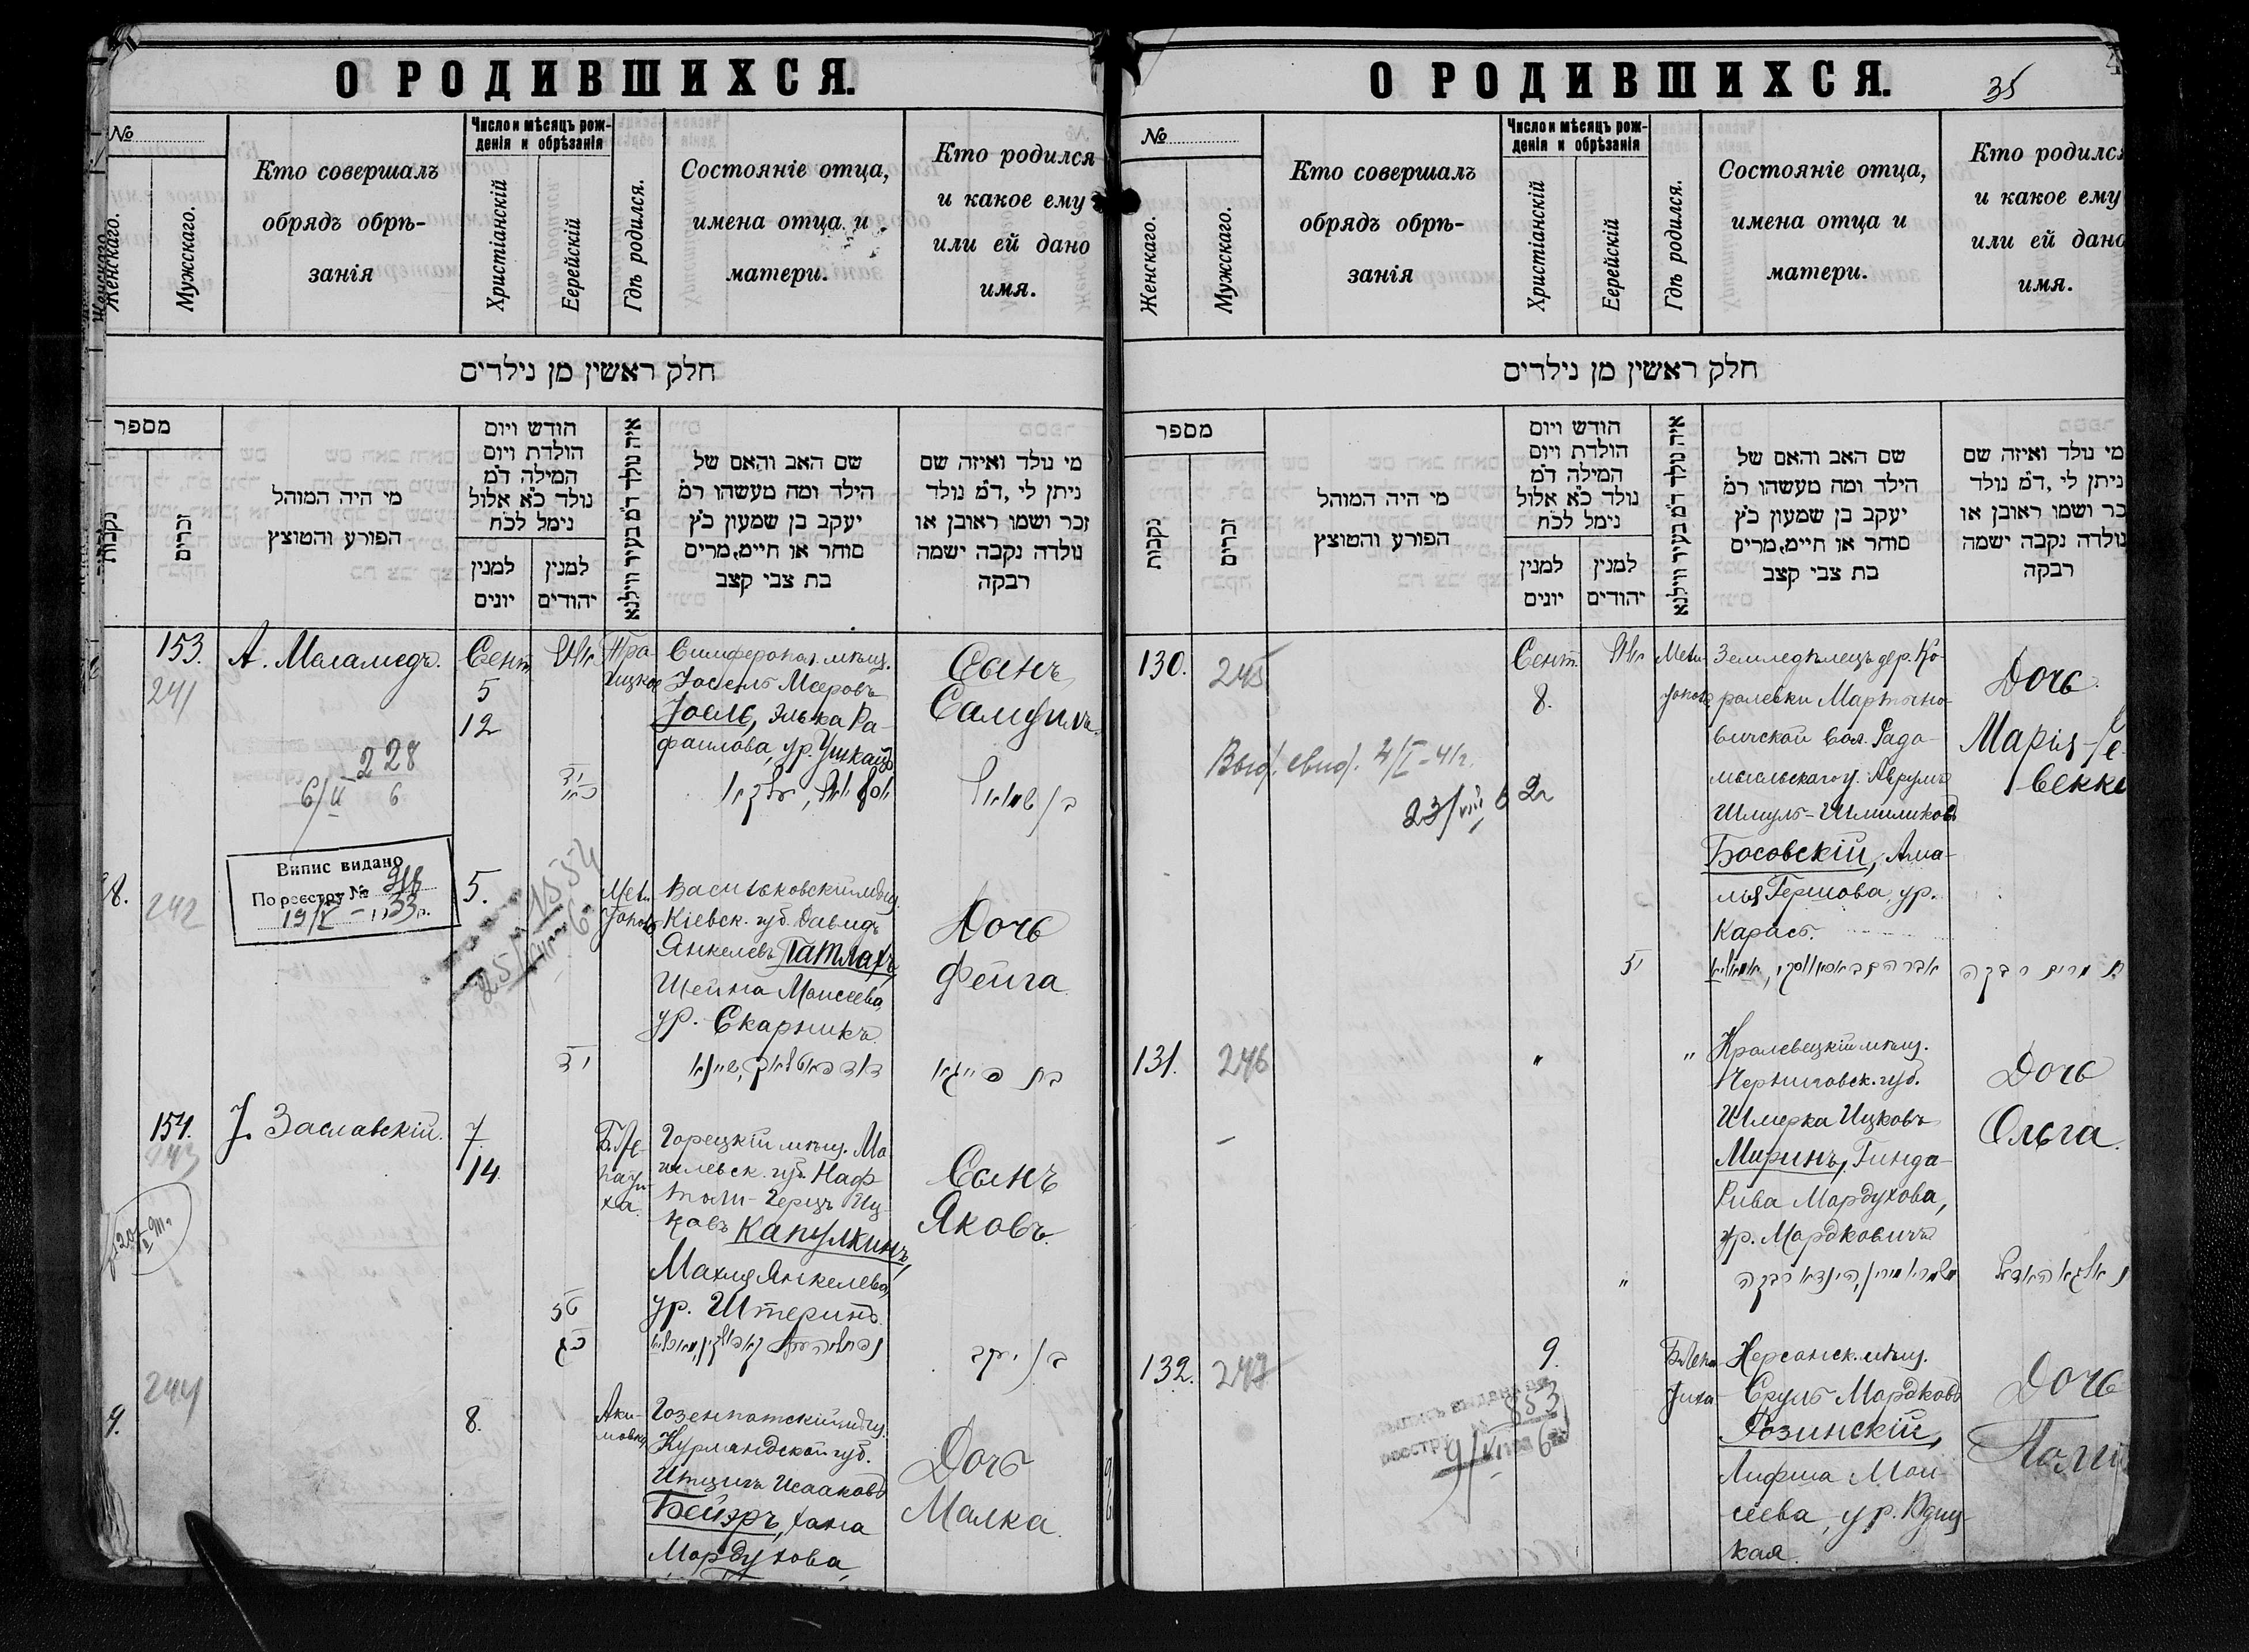 О РОДИВШИХСЯ.
№
Женскаго.
Мужскаго.
Кто совершалъ
обрядъ обрѣ-
занія
Число и мѣсяцъ рож-
денія и обрѣзанія
Христіанскій
Еерейскій
Гдѣ родился.
Состояніе отца,
имена отца и
матери.
Кто родился
и какое ему
или ей дано
имя.
חלק ראשין מן נילדים
מספר
נקבות
זכרים
מי היה המוהל
הפורע והטוצץ
הודש ויום
הולדת ויום
המילה דמ
נולד כא אלול
נימל לכח
למנין
יונים
למנין
יהודים
איה נולד דמ בעיר ווילנא
שם האב והאם של
הילד ומה מעשהו רמ
יעקב בן שמעון כץ
סוחר או חיימ, מרים
בת צבי קצב
מי נולד ואיזה שם
ניתן לי, דמ נולד
זכר ושמו ראובן או
נולדה נקבה ישמה
רבקה
153.
241
А. Маламедъ.
Сент.
5
12
Симферопол. мѣщ.
Іосель Мееровъ
Іоель, Элька Ра-
фаилова, ур. Ушкацъ
Сынъ
Самуилъ.
בן שמואל
228
6
6/II
Випис видано
По реєстру № 918
19/V - 33 р.
8.
242
5.
1554
Мели-
тополь
Васильковскій мѣщ.
Кіевск. губ. Давидъ
Янкелевъ Патлахъ,
Шейна Моисеева,
ур. Скарникъ.
Дочь
Фейга.
דוד פאטלאך, שיינא
בת פייגא
154.
243
І. Заславскій.
7.
14.
Б. Ле-
пати-
ха.
Горецкій мѣщ. Мо-
гилевск. губ. Наф-
толи-Герцъ Иц-
ковъ Капулкинъ,
Махля Янкелева,
ур. Штеринъ.
Сынъ
Яковъ.
בן יעקב
9.
244
8.
Аки-
мовка
Газенпотскій мѣщ.
Курляндской губ.
Итцигъ Исааковъ
Бейэръ, Хана
Мордухова,
Дочь
Малка.
О РОДИВШИХСЯ.
35
№
Женскаго.
Мужскаго.
Кто совершалъ
обрядъ обрѣ-
занія
Число и мѣсяцъ рож-
денія и обрѣзанія
Христіанскій
Еерейскій
Гдѣ родился.
Состояніе отца,
имена отца и
матери.
Кто родился
и какое ему
или ей дано
имя.
חלק ראשין מן נילדים
מספר
נקבות
זכרים
מי היה המוהל
הפורע והטוצץ
הודש ויום
הולדת ויום
המילה דמ
נולד כא אלול
נימל לכח
למנין
יונים
למנין
יהודים
איה נולד דמ בעיר ווילנא
שם האב והאם של
הילד ומה מעשהו רמ
יעקב בן שמעון כץ
סוחר או חיימ, מרים
בת צבי קצב
מי נולד ואיזה שם
ניתן לי, דמ נולד
כר ושמו ראובן או
נולדה נקבה ישמה
רבקה
130.
245
Сент.
8.
Мели-
тополь
Земледѣлецъ дер. Ко-
ролевки Мартыно-
вичской вол. Радо-
мысльскаго у. Аврумъ
Шмуль-Шмилиховъ
Босовскій, Ама-
лія Гершова, ур.
Карась.
Дочь.
Марія-Ре-
векка
Выд. свид. 4/I-41г.
23/VIII 62
ת מרים רבקה
131.
246
"
"
Кролевецкій мѣщ.
Черниговск. губ.
Шмерка Ицковъ
Миринъ, Гинда-
Рива Мордухова,
ур. Мордковичъ
Дочь
Ольга.
"
שמריא מירין, הינדא רבקה
132.
247
9.
Б. Лепа-
тиха
Херсонск. мѣщ.
Сруль Мордковъ
Розинскій,
Лифша Мои-
сеева, ур. Юдиц-
кая.
Дочь
853